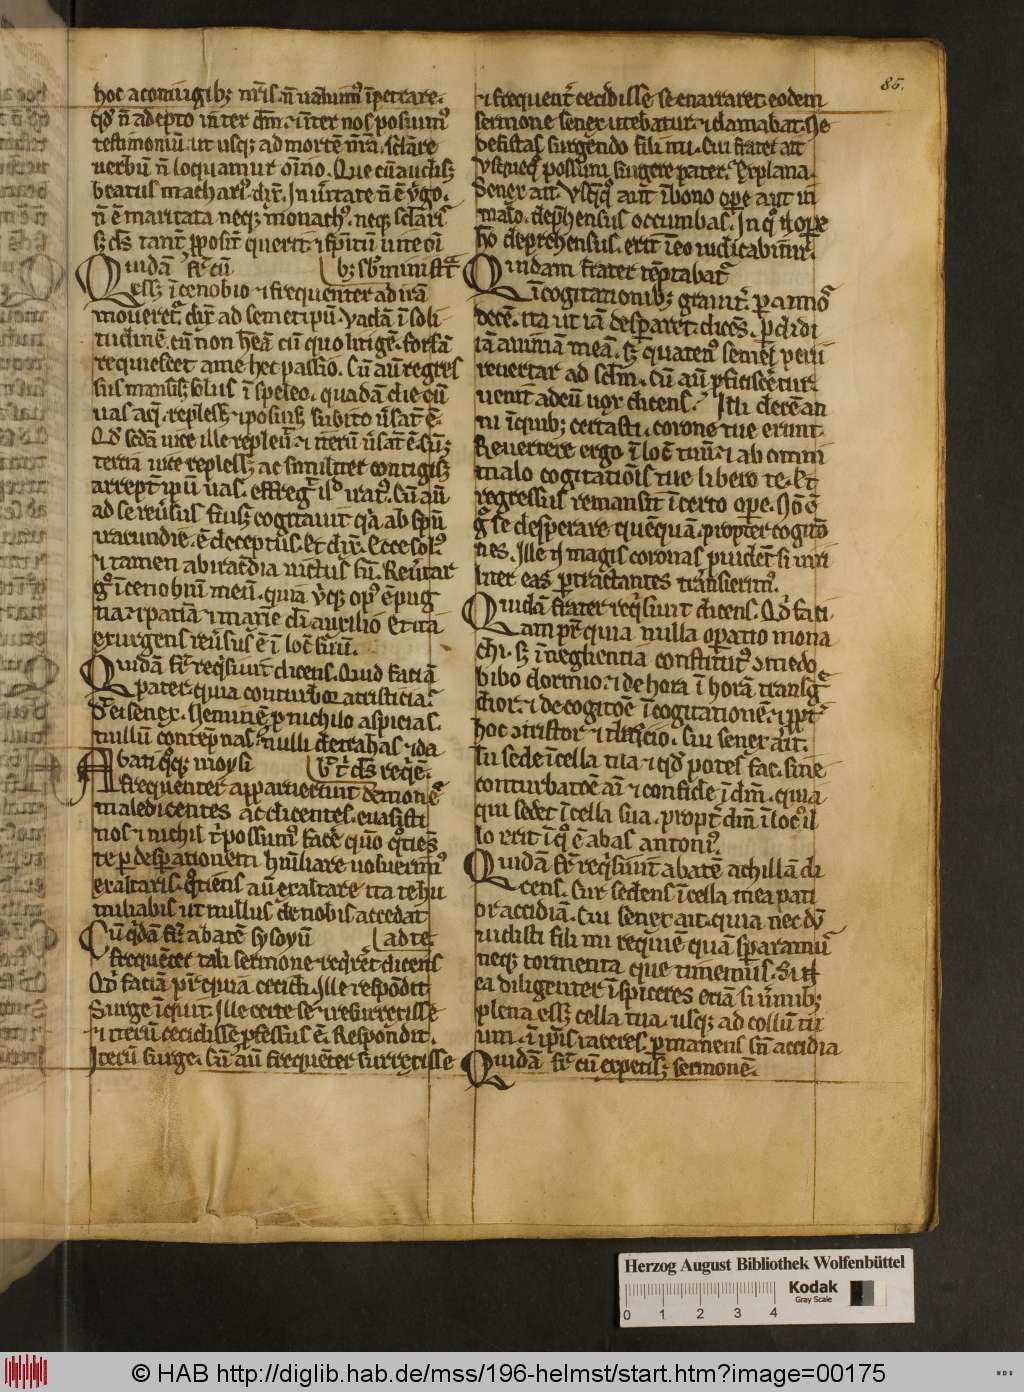 85.
hoc a coniugibꝫ nr̄is. n̄ ualuimꝰ īpetrare.
qd̓ n̄ adepto inter dm̄. ⁊ inter nos posuimꝰ
testimoniū. ut usqꝫ ad mortē nrā. sclare
uerbū n̄ loquamur oīno. Que cū audisꝫ
beatus machariꝰ. dix̄. In ūitate n̄ ē ỽgo.
n̄ ē maritata neqꝫ monachꝰ. neqꝫ sclaris
sꝫ dꝰs tantū ꝓposit̄ querit ⁊ spitū uite oī
Quidā fr̄ cū bꝫ sb̓ministr̄
essꝫ ī cenobio ⁊ frequenter ad irā
moueret̄. dix̄ ad semetipū. Vadā ī soli
tudinē. cū non heā cū quo litigē. forsā
requiescet a me hec passio. Cū aū regres
sus mansisꝫ solus ī speleo. quadā die cū
uas aq̄. replessꝫ ⁊ posuisꝫ subito ūsat̄ ē.
Qd̓ sedā uice ille repleuit ⁊ iterū ūsat̄ ē.
tercia uice replessꝫ ac similiter contigisꝫ
arrept̄ ipū uas. effregit
ad se reūsus fuisꝫ cogitauit q̄a ab spū
iracundie. ē deceptus. Et dix̄. Ecce solꝰ.
⁊ tamen ab iracdia uictus sū. Reūtar
gͦ ī cenobiū meū. quia
na ⁊ patiā ⁊ maxīe dī auxilio. Et ita
exurgens reūsus ē ī locū suū.
Quidā fr̄ reqsiuit dicens. Quid faciā
pater. quia conturbor a tristicia.
D̄ ei senex. Neminē ꝓ nichilo aspicias.
nullū contēpnas. nulli detrahas. ⁊ da
Abati qͦqꝫ moysi bit̄ dꝰs reqiē.
frequenter apparuerunt demonēs
maledicentes ac dicentes. euasisti
nos ⁊ nichil t̄ possumꝰ facē quo q̄tiēs
te ꝑ desꝑationem hūiliare uoluerimꝰ
exaltaris. q̄tiens aū exaltare ita te hu
miliabis ut nullus de nobis accedat
Cū q̄dā fr̄ abatē sysoyū ad te
frequēter tali sermone reqr̄et dicens
Qd̓ faciā pr̄ quia cecidi. Ille respōdit
Surge īquit. Ille certe se resurrexisse
⁊ iterū cecidisse ꝓfessus ē. Respondit.
Iterū surge. Cū aū frequēter surrexisse
⁊ frequent̄ cecidisse se enarraret. eodem
sermone senex utebatur. ⁊ clamabat. Ne
desistas surgendo fili mi. Cui frater ait
Vsqueqͦ possum surgere pater. Explana.
Senex ait. Vsqꝫqͦ aut ī bono ope aut in
malo. dep̄hensus occumbas. In qͦ
hō deprehensus. erit ī eo iudicabitur.
Quidam frater tēptabat̄
ī cogitationibꝫ grauit̄. ꝑ annos
decē. ita ut iā desparet. dicēs. ꝑdidi
iā animā meā. sꝫ quatenꝰ semel perii
reuertar ad sclm̄. Cū aū ꝓficisceret̄
uenit ad eū uox dicens. Illi decē an
ni ī quibꝫ certasti. corone tue erunt.
Reuertere ergo ī locū tuū. ⁊ ab omni
malo cogitatiōis tue libero te. Et
regressus remansit ī certo ope.
gͦ se desperare quēquā. propter cogitō
nes. Ille magis coronas puidēt si uiri
liter eas ꝑtractantes trāsierimꝰ.
Quidā frater reqsiuit dicens. Qd̓ faci
am pr̄ quia nulla opatio mona
chi. sꝫ ī neglientia constitutꝰ omedo
bibo dormio. ⁊ de hora ī horā transḡ
dior. ⁊ de cogitōe ī cogitationē. ⁊ ppt̄
hoc ōtristor ⁊ deficio. Cui senex ait.
Tu sede ī cella tua. ⁊ qd̓ potes fac. sine
conturbatōe aī ⁊ confide ī dm̄. quia
qui sedet ī cella sua. propt̄ dm̄ ī locͦ il
lo erit ī qͦ ē abas antoniꝰ.
Quidā fr̄ reqsiuit abatē achillā di
cens. Cur sedens ī cella mea pati
or accidiā. Cui senex ait. quia nec dū
uidisti fili mi requiē quā sꝑamus
neqꝫ tormenta que timemus. Si .n.
ea diligenter īspiceres etiā si ūmibꝫ
plena essꝫ cella tua. usqꝫ ad collū tu
um. ī ipis iaceres. ꝑmanens sn̄ accidia
Quidā fr̄ cū expetisꝫ sermonē.
Herzog August Bibliothek Wolfenbüttel
0 1 2 3 4
Kodak
Gray Scale
© HAB http://diglib.hab.de/mss/196-helmst/start.htm?image=00175